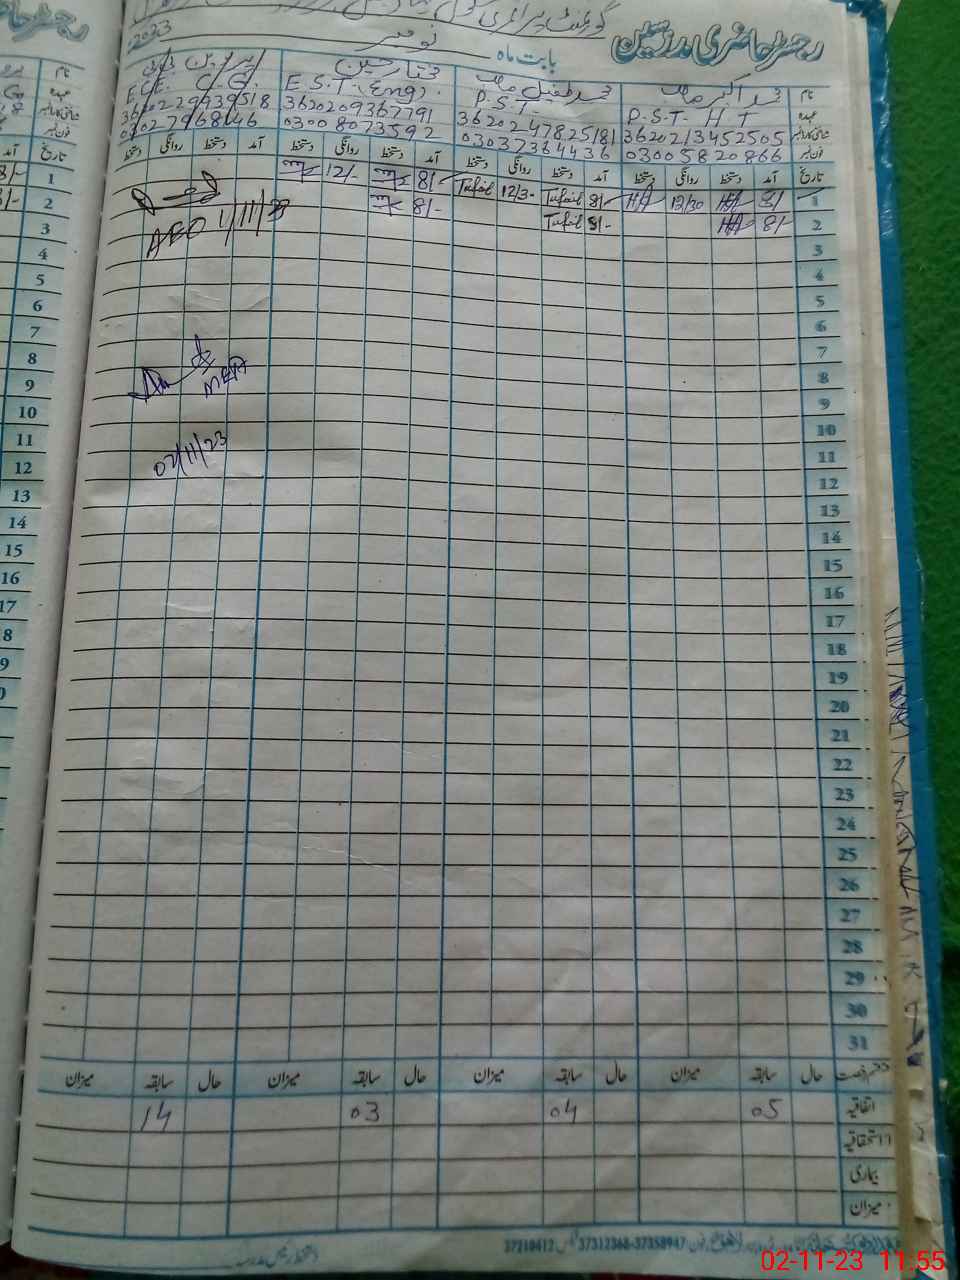 رجسٹر حاضری مدرسین
گورنمنٹ پرائمری سکول
بابت ماہ نومبر 2023
نام محمد اکبر
عہدہ P.S.T. H T
شناختی کارڈ نمبر 3620213452505
فون نمبر 03005820866
محمد طفیل
P.S.T
3620247825181
03037364436
مختار حسین
E.S.T.(Eng).
3620209367791
03008073592
پروین بی بی
E.C.E. C.G.
3620229939518
03027968146
تاریخ آمد دستخط روانگی دستخط آمد دستخط روانگی دستخط آمد دستخط روانگی دستخط آمد دستخط روانگی دستخط
1 8/- HA 12/30 HA 8/- Tufail 12/30 Tufail 8/- 12/-
2 8/- HA 8/- Tufail 8/-
AEO 1/11/23
3
4
5
6
7
8
MEA
9
10
11
02/11/23
12
13
14
15
16
17
18
19
20
21
22
23
24
25
26
27
28
29
30
31
رخصت حال سابقہ میزان حال سابقہ میزان حال سابقہ میزان حال سابقہ میزان
اتفاقیہ 05 04 03 14
استحقاقیہ
بیماری
میزان
37210412 37312368-37358947
دستخط رئیس مدرسہ
02-11-23 11:55